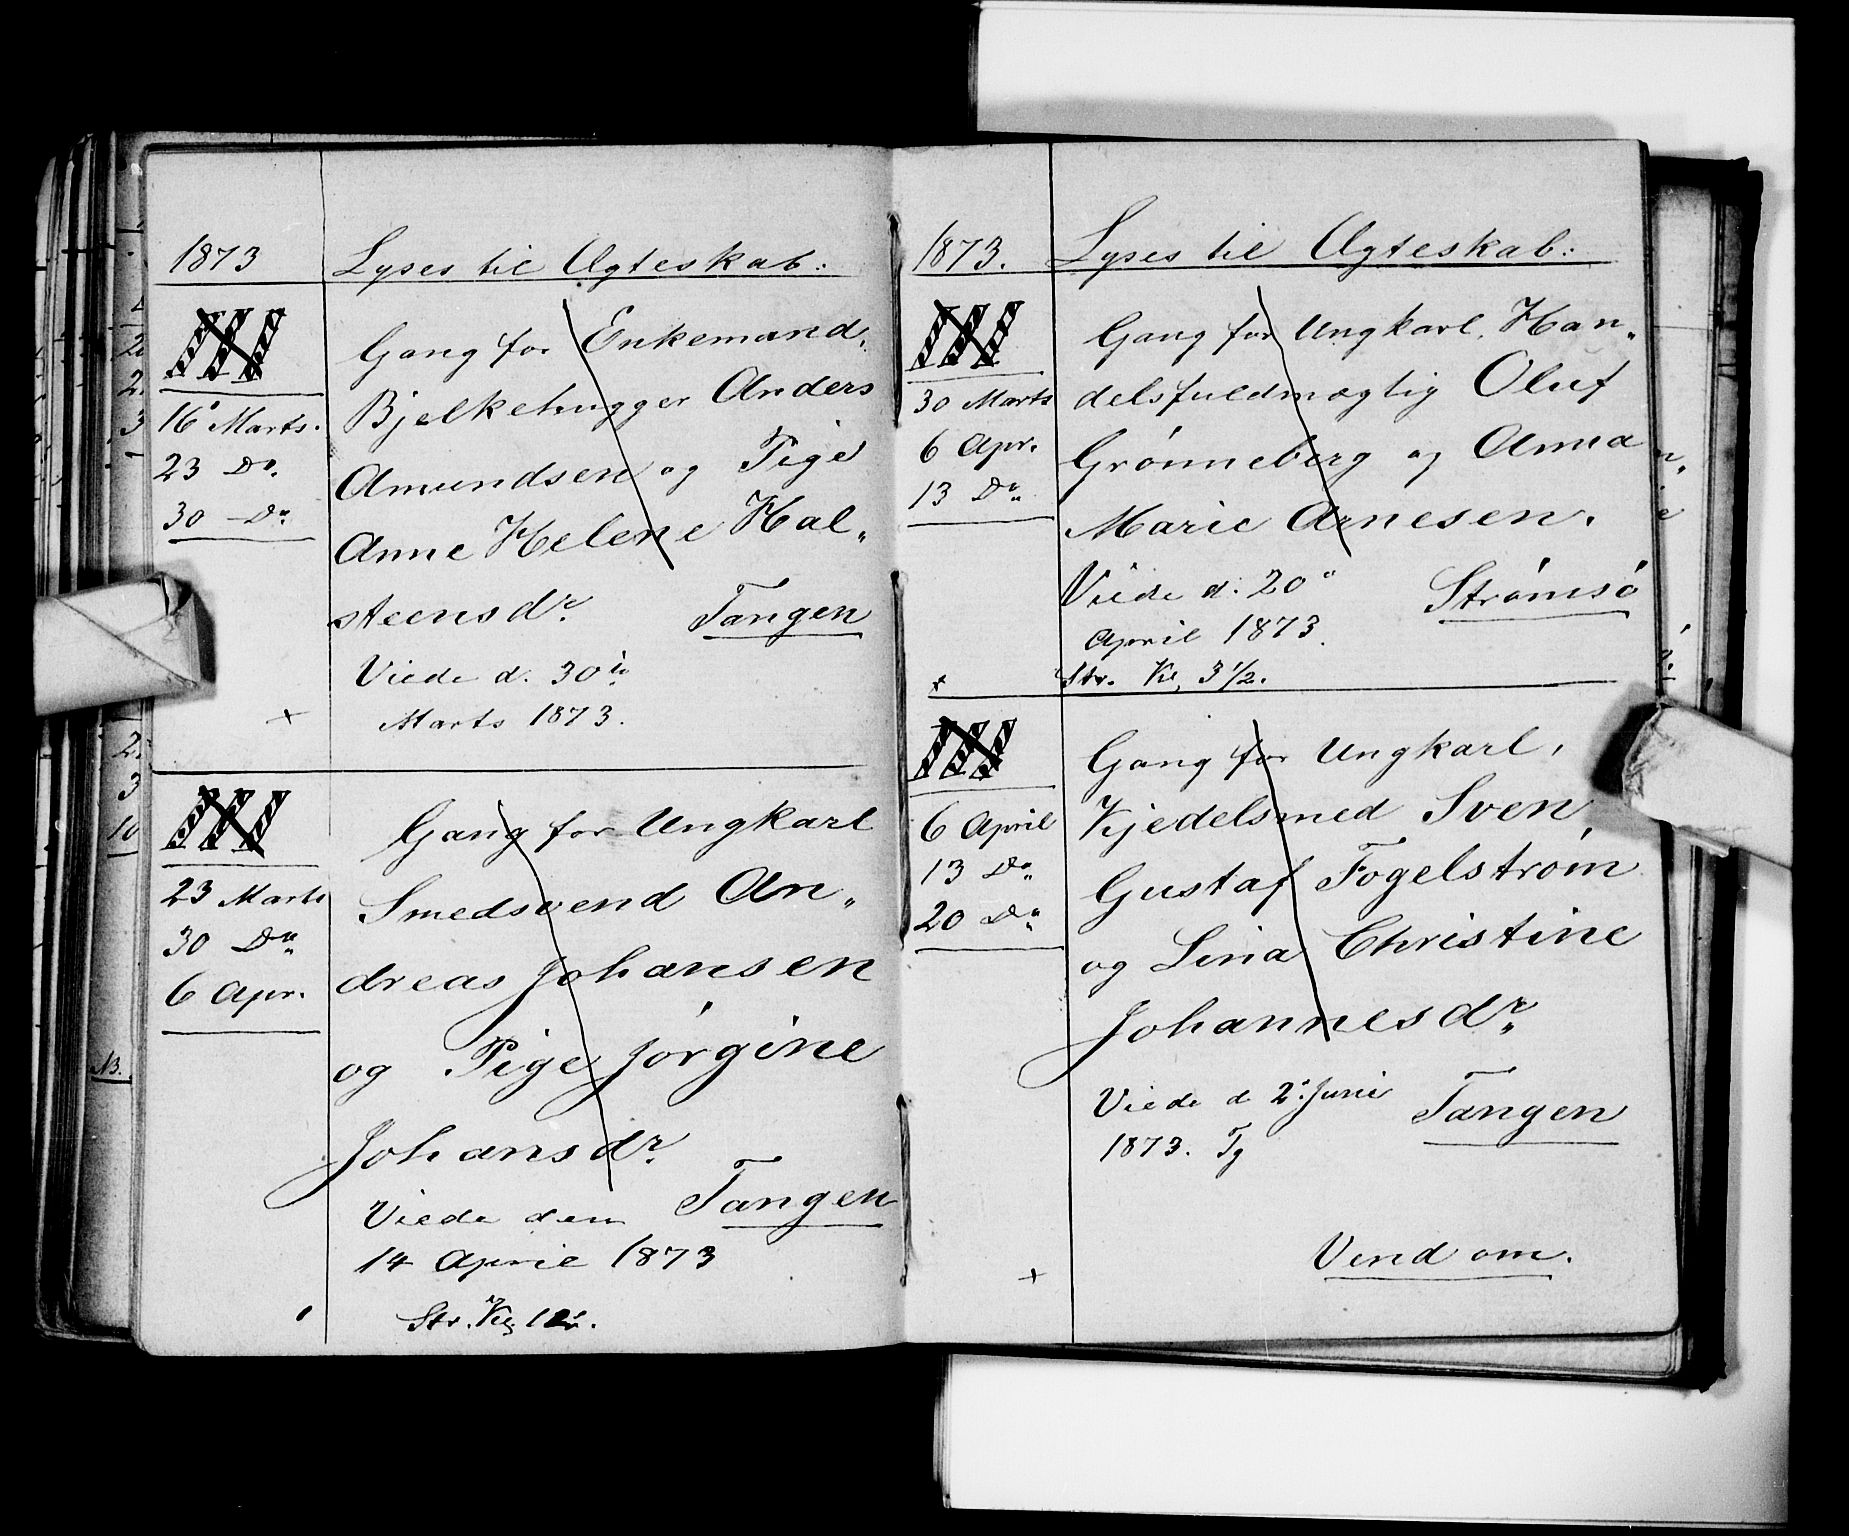 1873
Lyses til Ægteskab:
III
16 Marts.
23 Do.
30 - Do.
Gang for Enkemand,
Bjelkehugger Anders
Amundsen og Pige
Anne Helene Hal„
steensdr.
Tangen
Viede d. 30te
Marts 1873.
III
23 Marts
30 Do
6 Apr.
Gang for Ungkarl
Smedsvend An„
dreas Johansen
og Pige Jørgine
Johansdr.
Tangen
Viede den
14 April 1873
Str. Kl.
1873.
Lyses til Ægteskab:
III
30 Marts
6 Apr.
13 Do
Gang for Ungkarl, Han„
delsfuldmægtig Oluf
Grønneberg og Anna
Marie Arnesen.
Viede d: 20
Strømsø
April 1873.
Str. Kl. 3 1/2.
III
6 April
13 Do
20 Do
Gang for Ungkarl,
Kjedelsmed Sven
Gustaf Fogelstrøm
og Lina Christine
Johannesdr.
Viede d 2. Juni
1873. Tg
Tangen
Vend om.